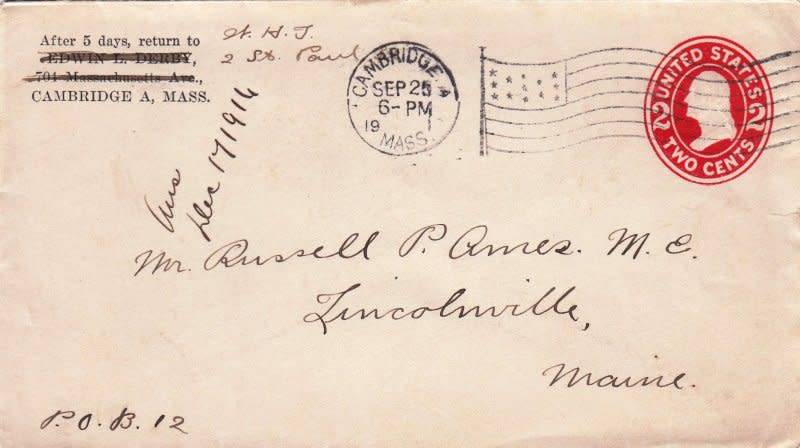 After 5 days, return to
EDWIN L. DERBY,
704 Massachusetts Ave.,
CAMBRIDGE A, MASS.
W. H. J.
2 St. Paul
CAMBRIDGE. A
SEP 25
6-PM
19
MASS.
UNITED STATES
2 2
TWO CENTS
Ans
Dec 17 1916
Mr. Russell P. Ames. M. C.
Lincolnville,
Maine.
P.O.B. 12